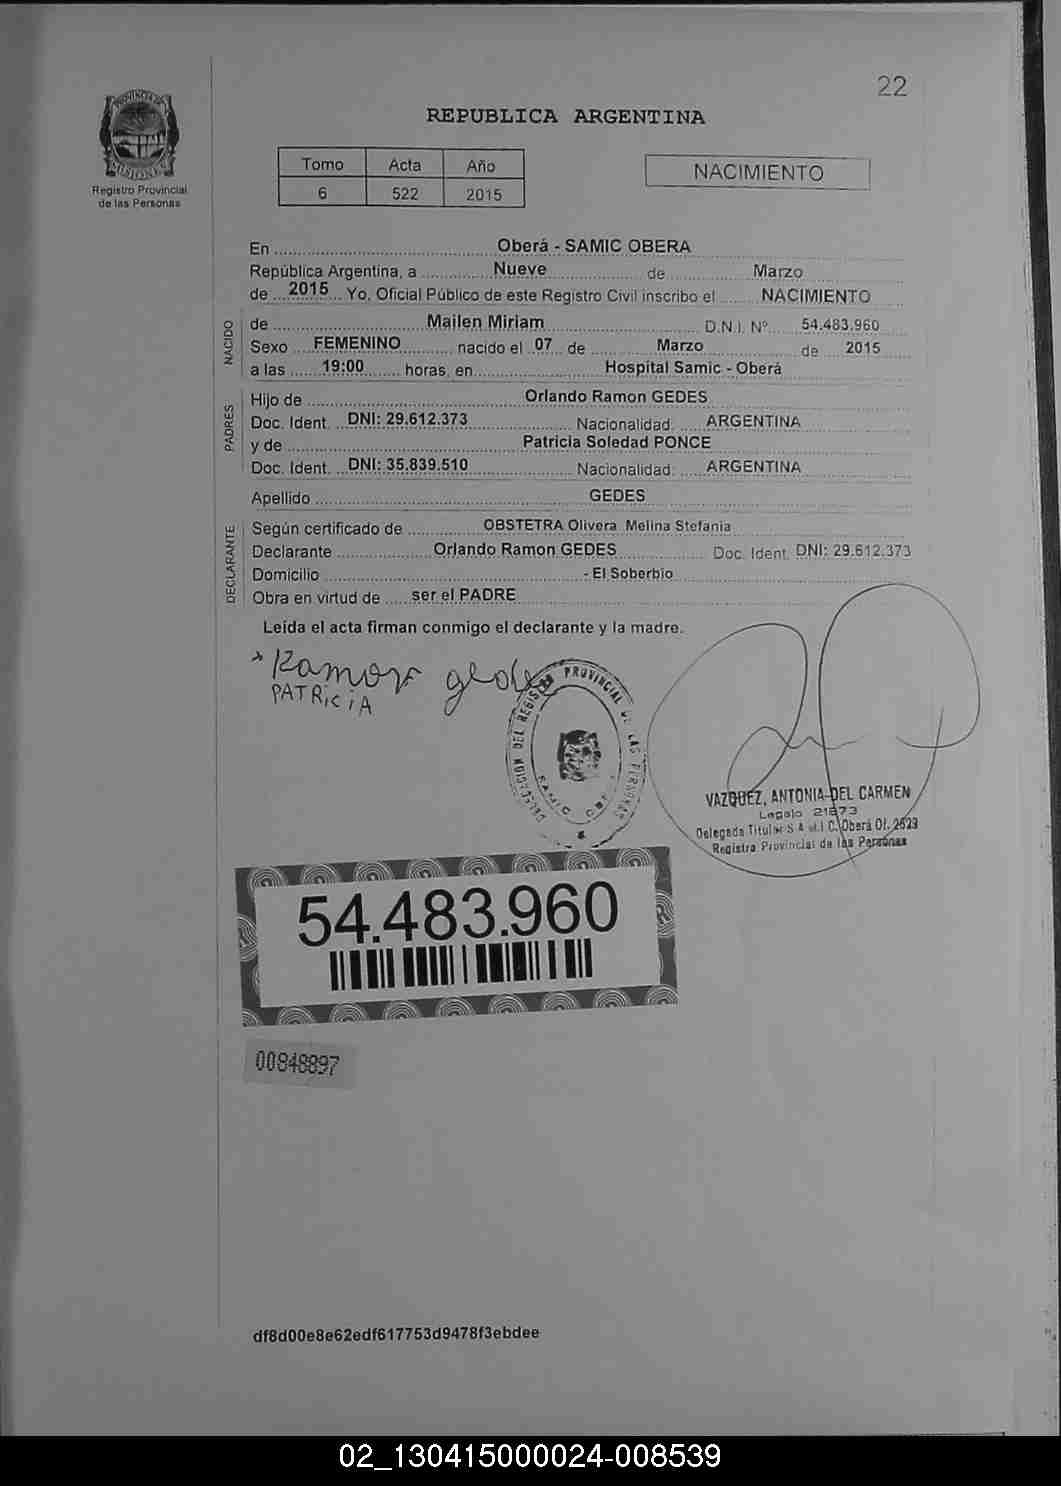 22
PROVINCIA DE
MISIONES
Registro Provincial
de las Personas
REPUBLICA ARGENTINA
Tomo Acta Año
6 522 2015
NACIMIENTO
En Oberá - SAMIC OBERA
República Argentina, a Nueve de Marzo
de 2015 Yo, Oficial Público de este Registro Civil inscribo el NACIMIENTO
NACIDO
de Mailen Miriam D.N.I. Nº 54.483.960
Sexo FEMENINO nacido el 07 de Marzo de 2015
a las 19:00 horas, en Hospital Samic - Oberá
PADRES
Hijo de Orlando Ramon GEDES
Doc. Ident. DNI: 29.612.373 Nacionalidad: ARGENTINA
y de Patricia Soledad PONCE
Doc. Ident. DNI: 35.839.510 Nacionalidad: ARGENTINA
Apellido GEDES
DECLARANTE
Según certificado de OBSTETRA Olivera Melina Stefania
Declarante Orlando Ramon GEDES Doc. Ident. DNI: 29.612.373
Domicilio - El Soberbio
Obra en virtud de ser el PADRE
Leída el acta firman conmigo el declarante y la madre.
Ramon gedes
PATRiCiA
DELEGACION DEL REGISTRO PROVINCIAL DE LAS PERSONAS
SAMIC
VAZQUEZ, ANTONIA DEL CARMEN
Legajo 21873
Delegada Titular S.A.M.I.C. Oberá Of. 2623
Registro Provincial de las Personas
54.483.960
00848897
df8d00e8e62edf617753d9478f3ebdee
02_130415000024-008539